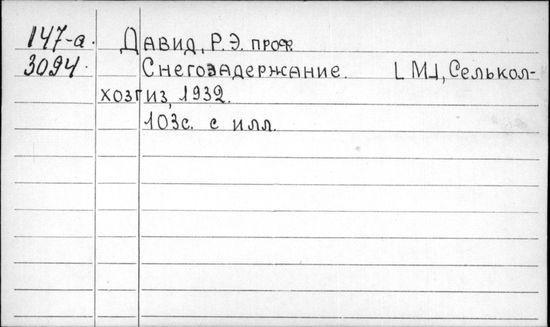 147-а. Давид, Р. Э. проф
3094. Снегозадержание. [М], Сельkoл-
хозгиз, 1932.
103с. с илл.